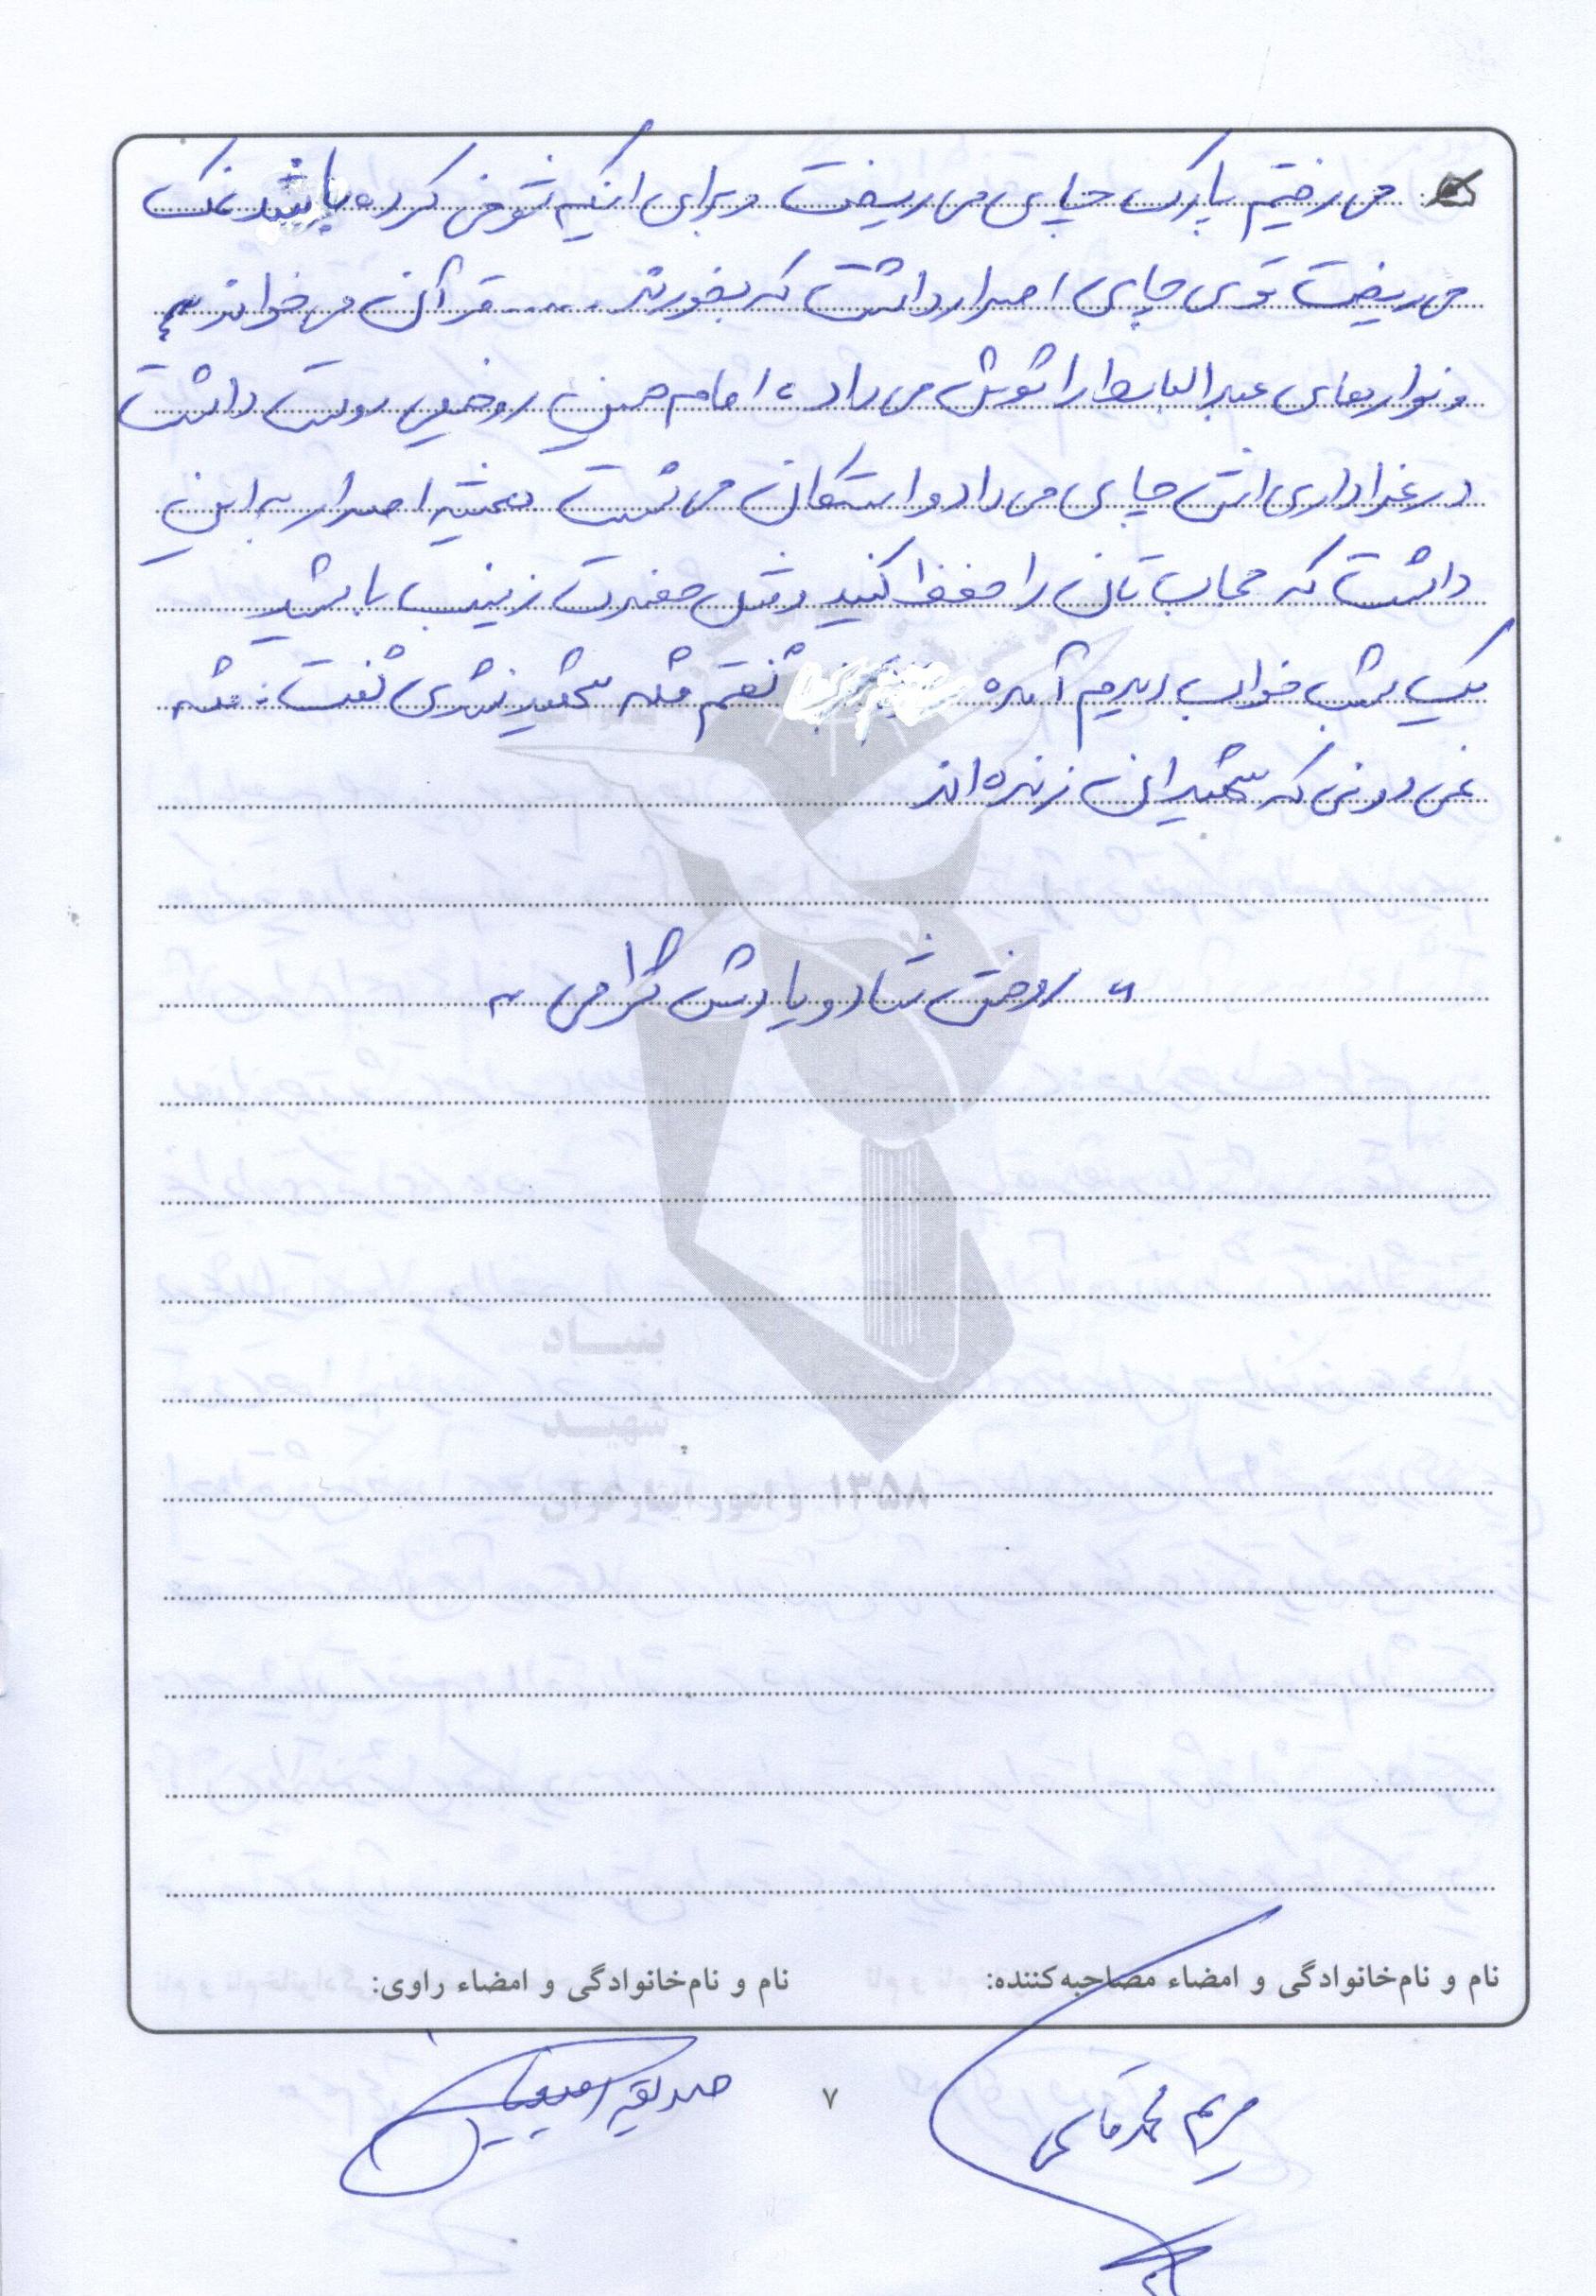 می رفتیم پارک چای می ریخت و برای اینکه شوخی کرده باشد نمک
می ریخت توی چای اصرار داشت که بخورند .... قرآن می خواند
و نوارهای عبدالباسط را گوش می داد، امام حسین رو خیلی دوست داشت
در عزاداری اش چای می داد و استکان می شست همیشه اصرار به این
داشت که حجاب تان را حفظ کنید و مثل حضرت زینب باشید
یک شب خواب دیدم آمده گفتم مگه شهید نشدی گفت: مگه
نمی دونی که شهیدان زنده اند
" روحش شاد و یادش گرامی "
بنیاد
شهید
و امور ایثارگران ۱۳۵۸
نام و نام‌خانوادگی و امضاء مصاحبه‌کننده: نام و نام‌خانوادگی و امضاء راوی:
مریم محمدقاسمی ۷ صدیقه